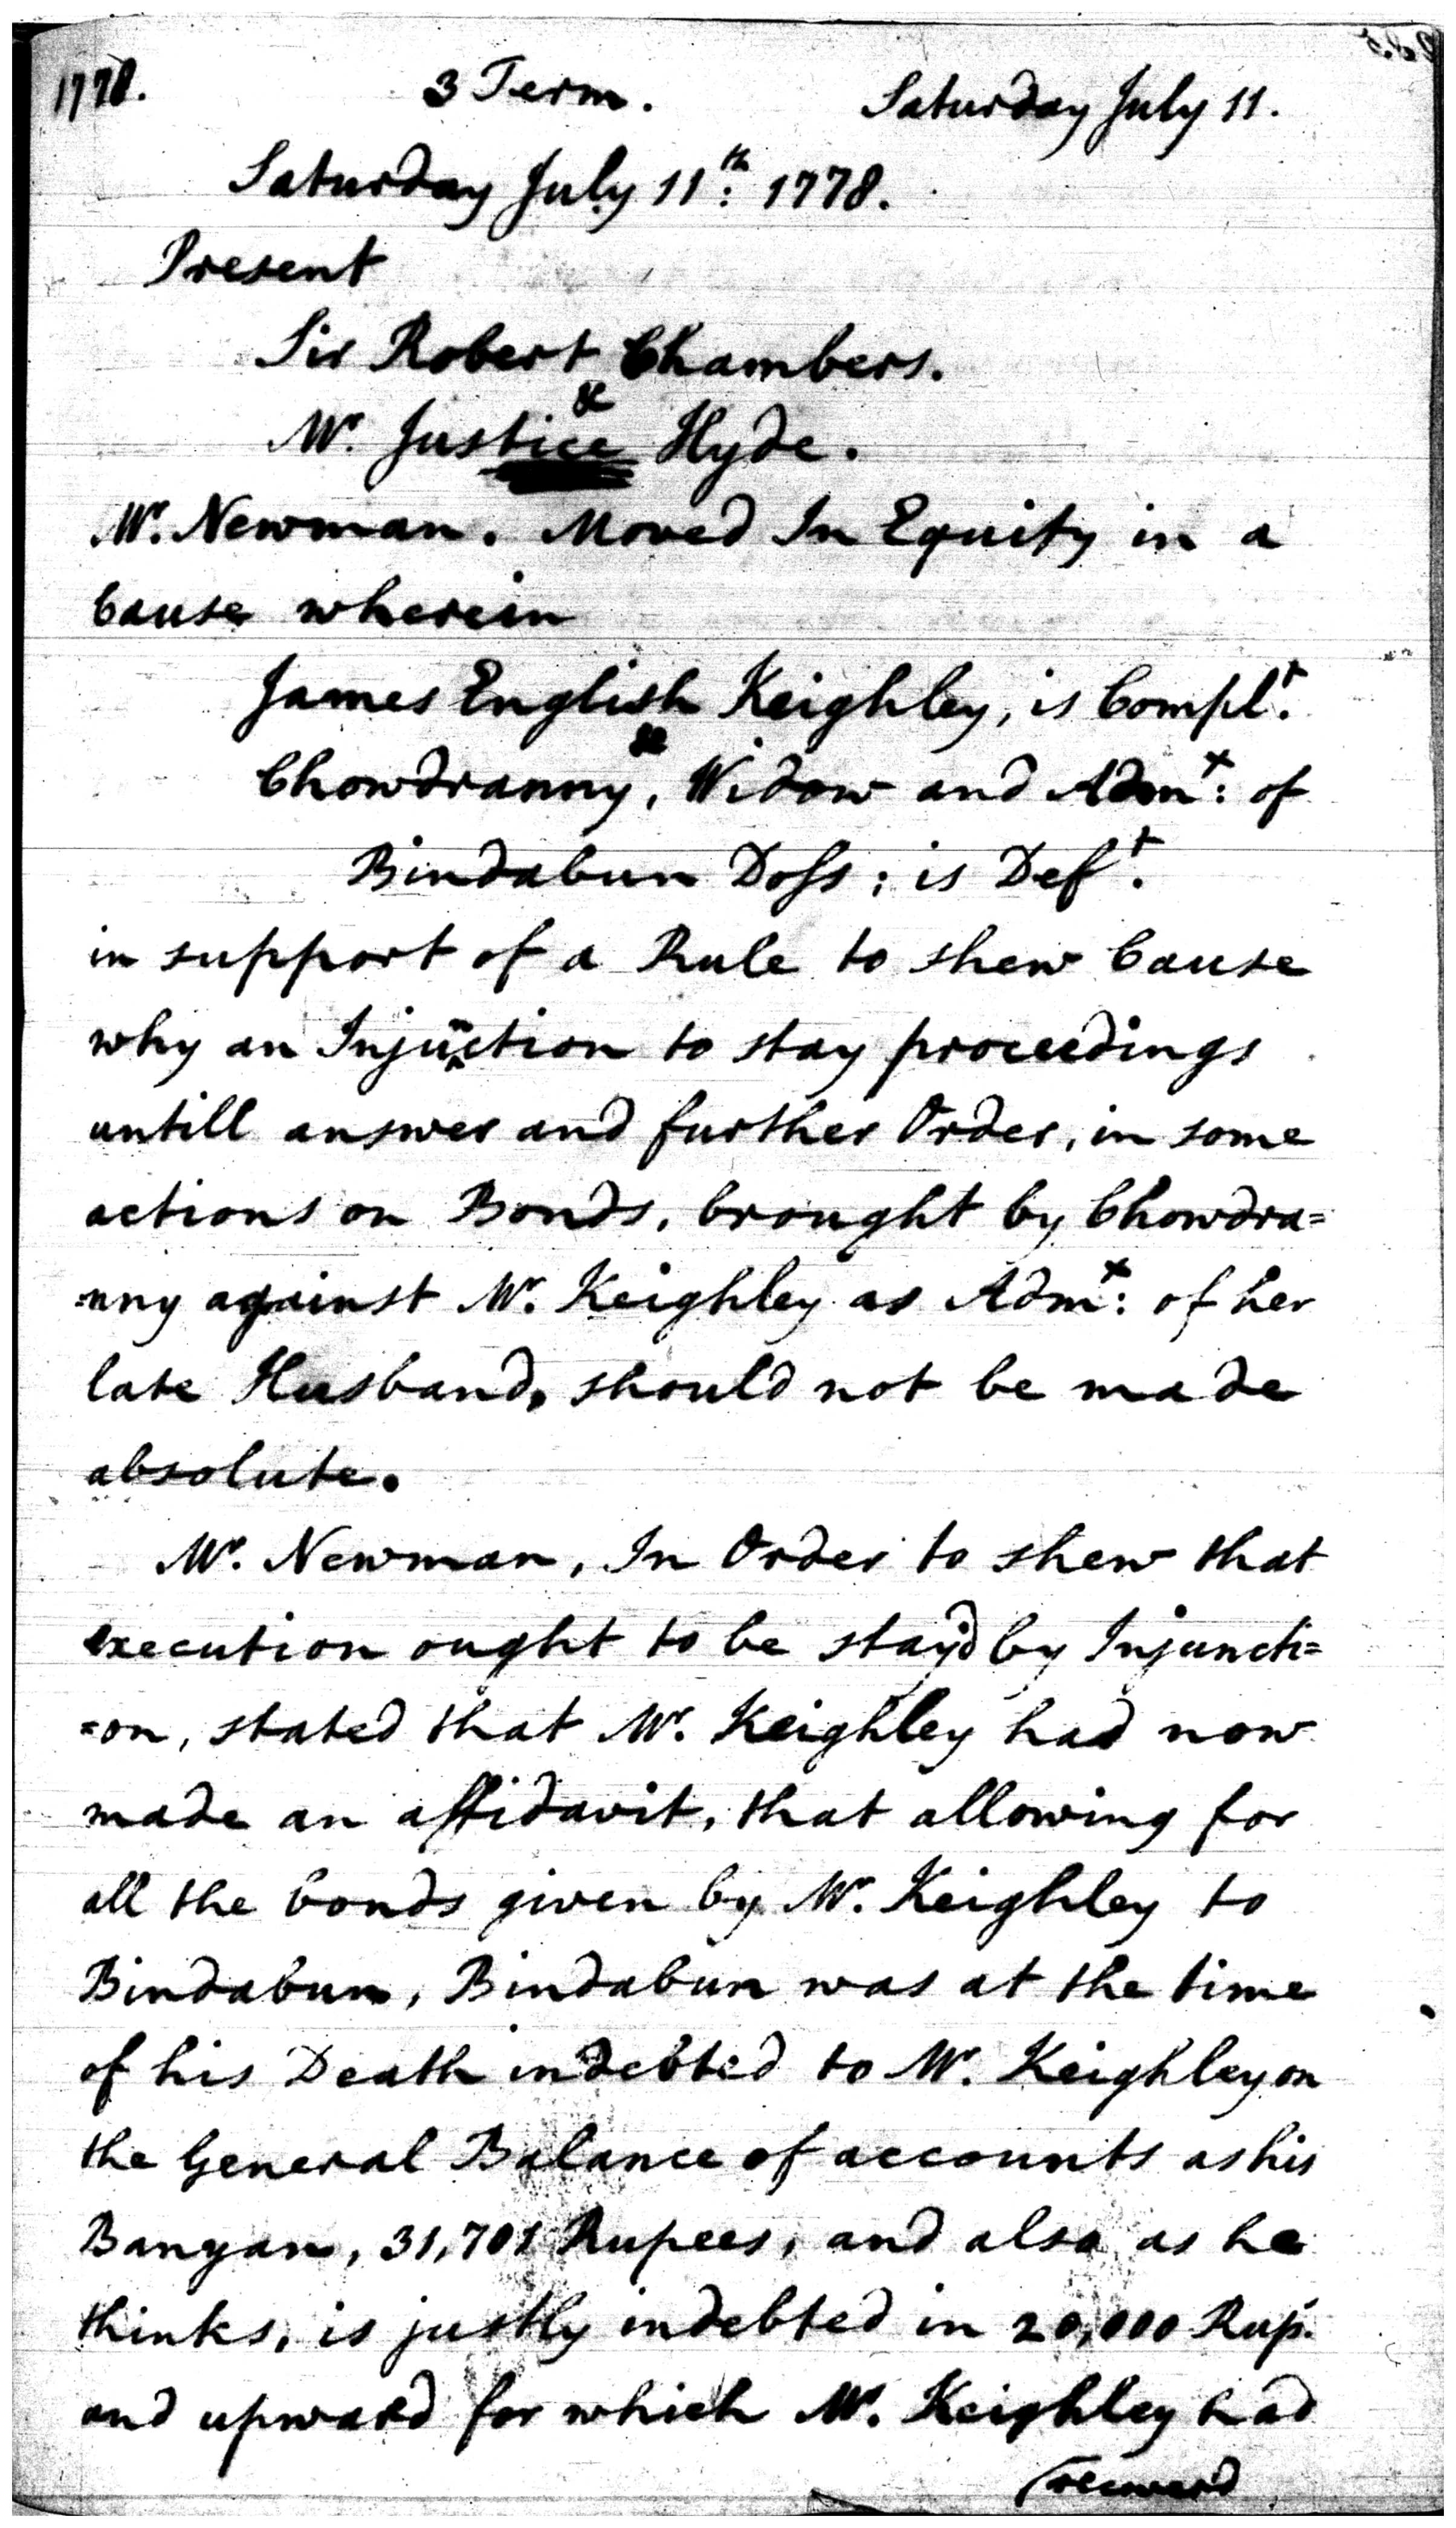 1778. 3 Term. Saturday July 11.
Saturday July 11th: 1778.
Present
Sir Robert Chambers.
&
Mr. Justice Hyde.
Mr. Newman. Moved In Equity in a
Cause wherein
James English Keighley, is Complt.
&
Chowdranny, Widow and Admx: of
Bindabun Doss; is Deft.
in support of a Rule to shew Cause
why an Injunction to stay proceedings
untill answer and further Order, in some
actions on Bonds, brought by Chowdra=
=nny against Mr. Keighley as Admx: of her
late Husband, should not be made
absolute.
Mr. Newman, In Order to shew that
execution ought to be stay'd by Injuncti=
=on, stated that Mr. Keighley had now
made an affidavit, that allowing for
all the bonds given by Mr. Keighley to
Bindabun, Bindabun was at the time
of his Death indebted to Mr. Keighley on
the General Balance of accounts as his
Banyan, 31,701 Rupees, and also as he
thinks, is justly indebted in 20,000 Rup.
and upward for which Mr. Keighley had